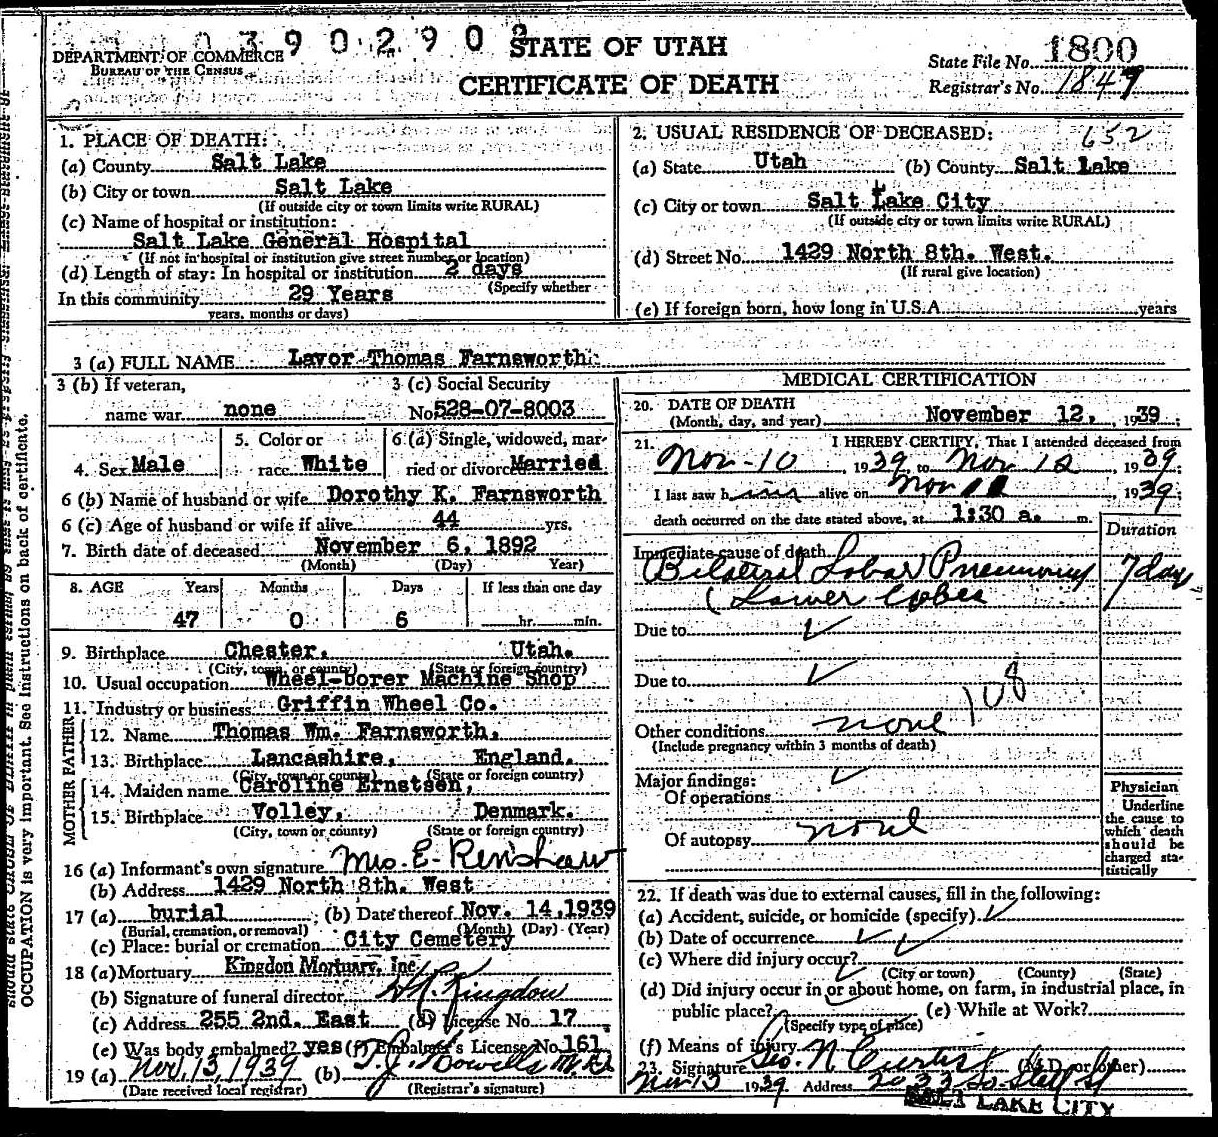 0390290
STATE OF UTAH
CERTIFICATE OF DEATH
DEPARTMENT OF COMMERCE
BUREAU OF THE CENSUS
State File No. 1800
Registrar's No. 1849
1. PLACE OF DEATH:
(a) County Salt Lake
(b) City or town Salt Lake
(If outside city or town limits write RURAL)
(c) Name of hospital or institution:
Salt Lake General Hospital
(If not in hospital or institution give street number or location)
(d) Length of stay: In hospital or institution 2 days
(Specify whether
In this community 29 Years
years, months or days)
2. USUAL RESIDENCE OF DECEASED: 652
(a) State Utah (b) County Salt Lake
(c) City or town Salt Lake City
(If outside city or town limits write RURAL)
(d) Street No. 1429 North 8th. West.
(If rural give location)
(e) If foreign born, how long in U.S.A. years
3 (a) FULL NAME Lavor Thomas Farnsworth.
3 (b) If veteran,
name war none
3 (c) Social Security
No. 528-07-8003
4. Sex Male
5. Color or
race White
6 (a) Single, widowed, mar-
ried or divorced Married
6 (b) Name of husband or wife Dorothy K. Farnsworth
6 (c) Age of husband or wife if alive 44 yrs.
7. Birth date of deceased November 6, 1892
(Month) (Day) Year)
8. AGE Years Months Days If less than one day
47 0 6 hr. min.
9. Birthplace Chester. Utah.
(City, town, or county) (State or foreign country)
10. Usual occupation Wheel-borer Machine Shop
11. Industry or business Griffin Wheel Co.
FATHER
12. Name Thomas Wm. Farnsworth.
13. Birthplace Lancashire. England.
(City, town or county) (State or foreign country)
MOTHER
14. Maiden name Caroline Ernstsen,
15. Birthplace Volley. Denmark.
(City, town or county) (State or foreign country)
16 (a) Informant's own signature Mrs. E. Renshaw
(b) Address 1429 North 8th. West
17 (a) burial ; (b) Date thereof Nov. 14, 1939
(Burial, cremation, or removal) (Month) (Day) (Year)
(c) Place: burial or cremation City Cemetery
18 (a) Mortuary Kingdon Mortuary, Inc
(b) Signature of funeral director Kingdon
(c) Address 255 2nd. East (d) License No. 17
(e) Was body embalmed? yes (f) Embalmer's License No. 161
19 (a) Nov. 13, 1939 (b) T. J. Howells M.D.
(Date received local registrar) (Registrar's signature)
MEDICAL CERTIFICATION
20. DATE OF DEATH
(Month, day, and year) November 12, 1939;
21. I HEREBY CERTIFY, That I attended deceased from
Nov-10 1939, to Nov 12, 1939;
I last saw him alive on Nov 11, 1939;
death occurred on the date stated above, at 1:30 a. m.
Duration
Immediate cause of death
Bilateral Lobar Pneumonia 7 days
(Lower lobes
Due to
Due to
108
Other conditions none
(Include pregnancy within 3 months of death)
Major findings:
Of operations
Of autopsy none
Physician
Underline
the cause to
which death
should be
charged sta-
tistically
22. If death was due to external causes, fill in the following:
(a) Accident, suicide, or homicide (specify)
(b) Date of occurrence
(c) Where did injury occur?
(City or town) (County) (State)
(d) Did injury occur in or about home, on farm, in industrial place, in
public place? (e) While at Work?
(Specify type of place)
(f) Means of injury
23. Signature Geo. N Curtis (M.D. or other)
Nov 13 1939 Address 2033 So. State St
SALT LAKE CITY
OCCUPATION is very important. See instructions on back of certificate.